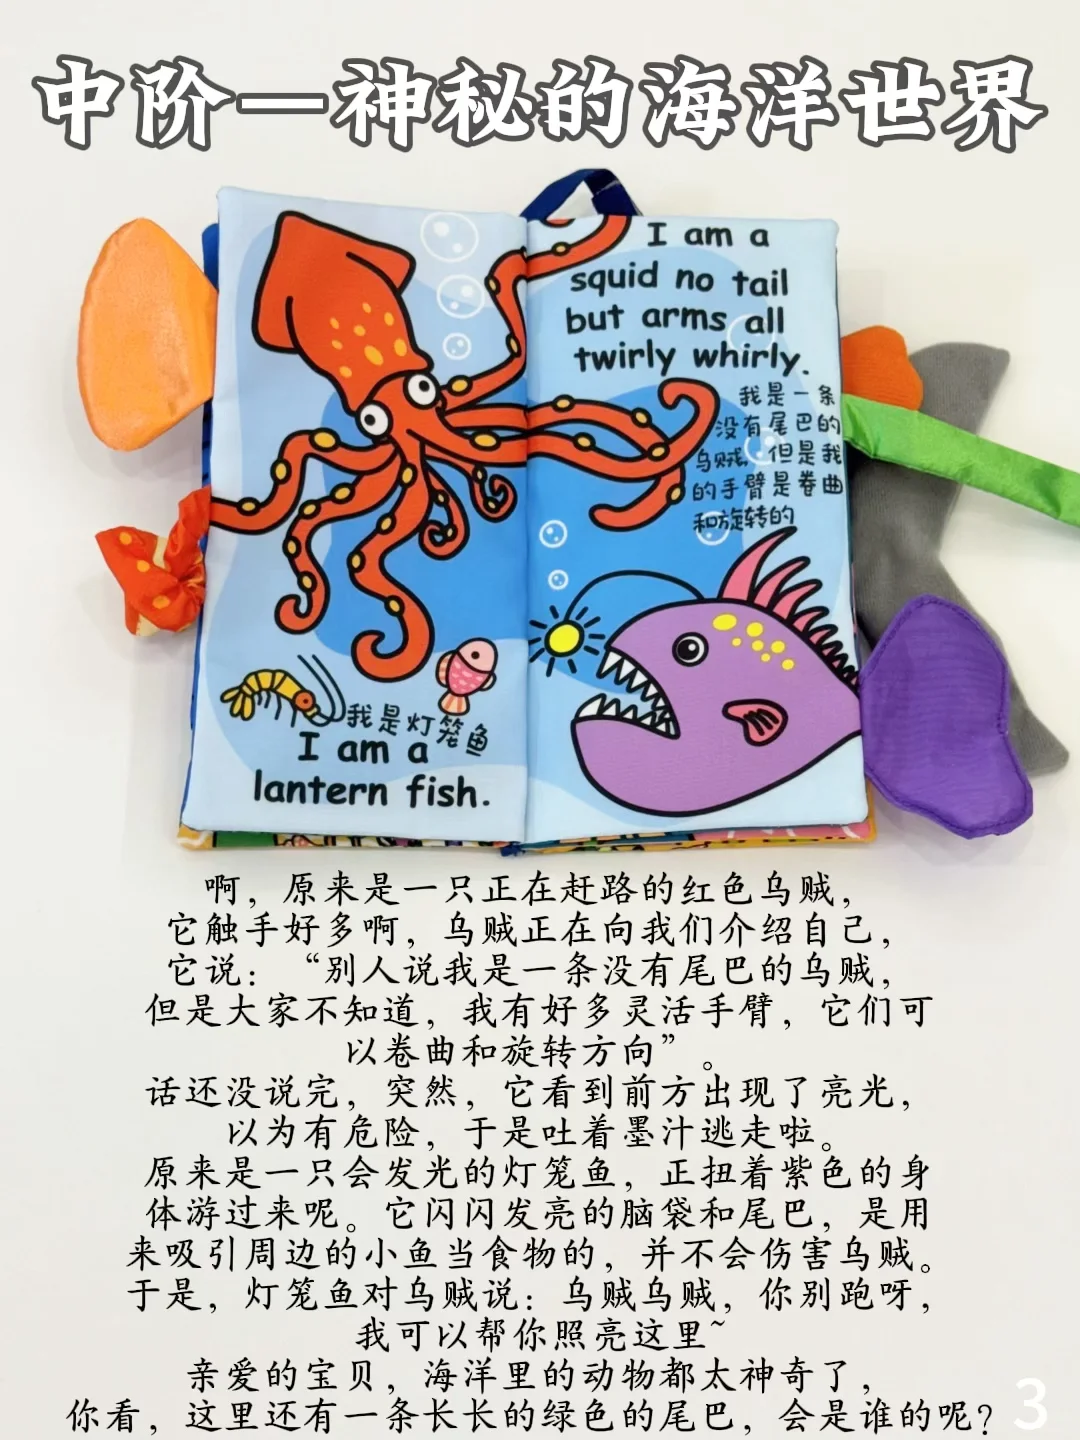 中阶—神秘的海洋世界
I am a
squid no tail
but arms all
twirly whirly.
我是一条
没有尾巴的
乌贼,但是我
的手臂是卷曲
和旋转的
我是灯笼鱼
I am a
lantern fish.
啊，原来是一只正在赶路的红色乌贼，
它触手好多啊，乌贼正在向我们介绍自己，
它说：“别人说我是一条没有尾巴的乌贼，
但是大家不知道，我有好多灵活手臂，它们可
以卷曲和旋转方向”。
话还没说完，突然，它看到前方出现了亮光，
以为有危险，于是吐着墨汁逃走啦。
原来是一只会发光的灯笼鱼，正扭着紫色的身
体游过来呢。它闪闪发亮的脑袋和尾巴，是用
来吸引周边的小鱼当食物的，并不会伤害乌贼。
于是，灯笼鱼对乌贼说：乌贼乌贼，你别跑呀，
我可以帮你照亮这里~
亲爱的宝贝，海洋里的动物都太神奇了，
你看，这里还有一条长长的绿色的尾巴，会是谁的呢？
3